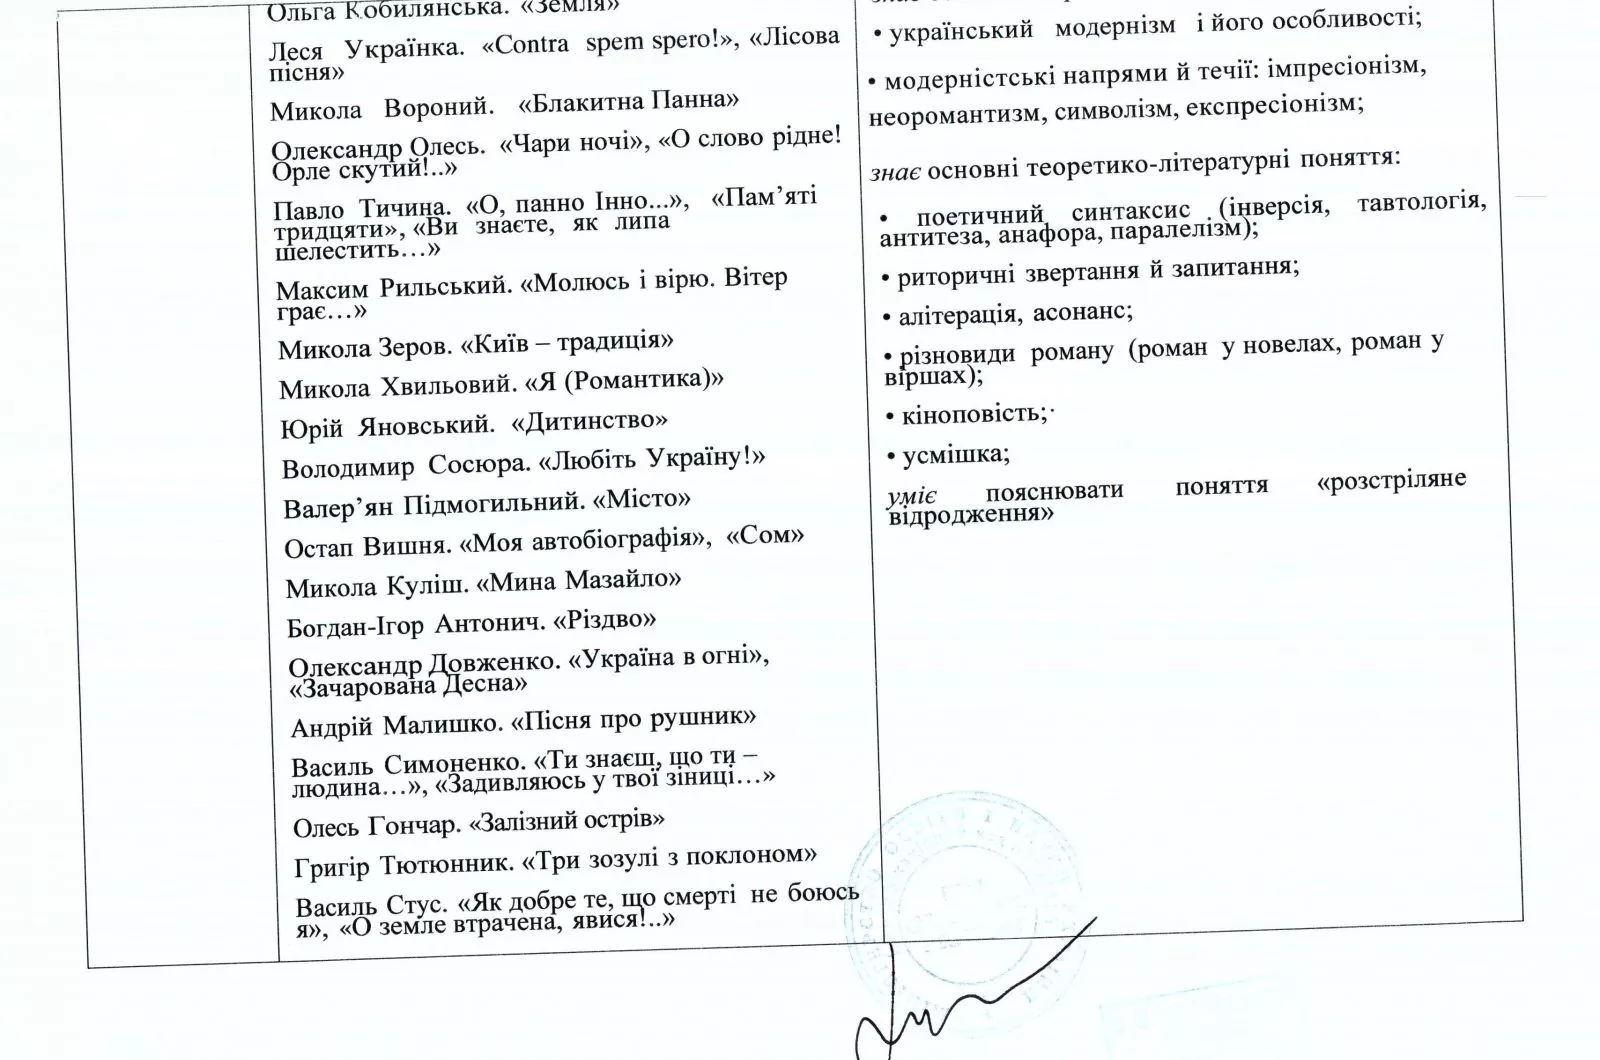 Ольга Кобилянська. «Земля»
Леся Українка. «Contra spem spero!», «Лісова
пісня»
Микола Вороний. «Блакитна Панна»
Олександр Олесь. «Чари ночі», «О слово рідне!
Орле скутий!..»
Павло Тичина. «О, панно Інно...», «Пам’яті
тридцяти», «Ви знаєте, як липа
шелестить…»
Максим Рильський. «Молюсь і вірю. Вітер
грає…»
Микола Зеров. «Київ – традиція»
Микола Хвильовий. «Я (Романтика)»
Юрій Яновський. «Дитинство»
Володимир Сосюра. «Любіть Україну!»
Валер’ян Підмогильний. «Місто»
Остап Вишня. «Моя автобіографія», «Сом»
Микола Куліш. «Мина Мазайло»
Богдан-Ігор Антонич. «Різдво»
Олександр Довженко. «Україна в огні»,
«Зачарована Десна»
Андрій Малишко. «Пісня про рушник»
Василь Симоненко. «Ти знаєш, що ти –
людина…», «Задивляюсь у твої зіниці…»
Олесь Гончар. «Залізний острів»
Григір Тютюнник. «Три зозулі з поклоном»
Василь Стус. «Як добре те, що смерті не боюсь
я», «О земле втрачена, явися!..»
• український модернізм і його особливості;
• модерністські напрями й течії: імпресіонізм,
неоромантизм, символізм, експресіонізм;
знає основні теоретико-літературні поняття:
• поетичний синтаксис (інверсія, тавтологія,
антитеза, анафора, паралелізм);
• риторичні звертання й запитання;
• алітерація, асонанс;
• різновиди роману (роман у новелах, роман у
віршах);
• кіноповість;
• усмішка;
уміє пояснювати поняття «розстріляне
відродження»